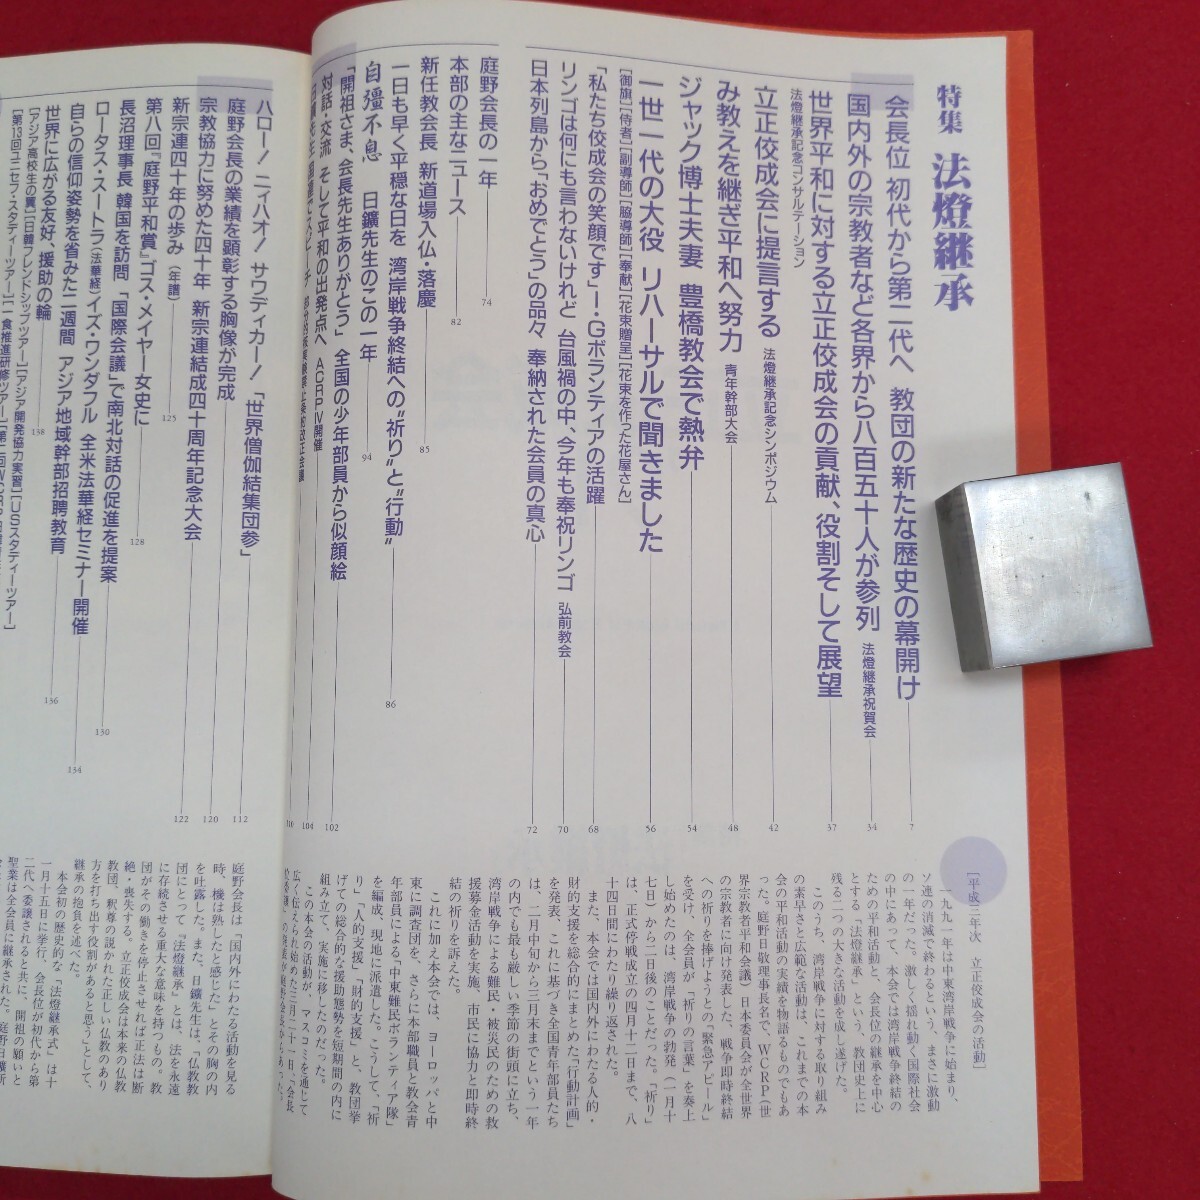 特集 法燈継承
会長位 初代から第二代へ 教団の新たな歴史の幕開け 7
国内外の宗教者など各界から八百五十人が参列 法燈継承祝賀会 34
世界平和に対する立正佼成会の貢献、役割そして展望 37
法燈継承記念コンサルテーション
立正佼成会に提言する 法燈継承記念シンポジウム 42
み教えを継ぎ平和へ努力 青年幹部大会 48
ジャック博士夫妻 豊橋教会で熱弁 54
一世一代の大役 リハーサルで聞きました 56
[御旗][侍者][副導師][脇導師][奉献][花束贈呈][花束を作った花屋さん]
「私たち佼成会の笑顔です」！・Gボランティアの活躍 68
リンゴは何にも言わないけれど 台風禍の中、今年も奉祝リンゴ 弘前教会 70
日本列島から「おめでとう」の品々 奉納された会員の真心 72
庭野会長の一年 74
本部の主なニュース 82
新任教会長 新道場入仏・落慶 85
一日も早く平穏な日を 湾岸戦争終結への"祈り"と"行動" 86
自彊不息 日鑛先生のこの一年 94
「開祖さま、会長先生ありがとう」 全国の少年部員から似顔絵 102
対話・交流 そして平和の出発点へ ACRPⅣ開催 104
110
[平成三年次 立正佼成会の活動]
一九九一年は中東湾岸戦争に始まり、
ソ連の消滅で終わるという、まさに激動
の一年だった。激しく揺れ動く国際社会
の中にあって、本会では湾岸戦争終結の
ための平和活動と、会長位の継承を中心
とする「法燈継承」という、教団史上に
残る二つの大きな活動を成し遂げた。
このうち、湾岸戦争に対する取り組み
の素早さと広範な活動は、これまでの本
会の平和活動の実績を物語るものでもあ
った。庭野日敬理事長名で、WCRP(世
界宗教者平和会議)日本委員会が全世界
の宗教者に向け発表した、戦争即時終結
への祈りを捧げようとの「緊急アピール」
を受け、全会員が「祈りの言葉」を奏上
し始めたのは、湾岸戦争の勃発(一月十
七日)から二日後のことだった。「祈り」
は、正式停戦成立の四月十二日まで、八
十四日間にわたり繰り返された。
また、本会では国内外にわたる人的・
財的支援を総合的にまとめた「行動計画」
を発表、これに基づき全国青年部員たち
は、二月中旬から三月末までという一年
の内でも最も厳しい季節の街頭に立ち、
湾岸戦争による難民・被災民のための救
援募金活動を実施、市民に協力と即時終
結の祈りを訴えた。
これに加え本会では、ヨーロッパと中
東に調査団を、さらに本部職員と教会青
年部員による「中東難民ボランティア隊」
を編成、現地に派遣した。こうして、「祈
り」「人的支援」「財的支援」と、教団挙
げての総合的な援助態勢を短期間の内に
組み立て、実施に移したのだった。
この本会の活動が、マスコミを通じて
広く伝えられ始めた三月二十一日、「会長
ハロー！ニイハオ！サワディカー！「世界僧伽結集団参」 112
庭野会長の業績を顕彰する胸像が完成 120
宗教協力に努めた四十年 新宗連結成四十周年記念大会 122
新宗連四十年の歩み(年譜) 125
第八回『庭野平和賞』ゴス・メイヤー女史に 128
長沼理事長 韓国を訪問 「国際会議」で南北対話の促進を提案 130
ロータス・スートラ(法華経)イズ・ワンダフル 全米法華経セミナー開催 134
自らの信仰姿勢を省みた二週間 アジア地域幹部招聘教育 136
世界に広がる友好、援助の輪 138
[アジア高校生の翼][日韓フレンドシップ・ツアー][アジア開発協力実習][USスタディーツアー]
庭野会長は「国内外にわたる活動を見る
時、機は熟したと感じた」とその胸の内
を吐露した。また、日鑛先生は、「仏教教
団にとって『法燈継承』とは、法を永遠
に存続させる重大な意味を持つもの。教
団がその働きを停止させれば正法は断
絶・喪失する。立正佼成会は本来の仏教
教団、釈尊の説かれた正しい仏教のあり
方を打ち出す役割があると思う」として、
継承の抱負を述べた。
本会初の歴史的な「法燈継承式」は十
一月十五日に挙行。会長位が初代から第
二代へ委譲されると共に、開祖の願いと
聖業は全会員に継承された。